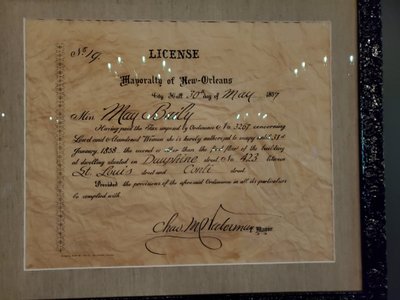 No. 19
LICENSE
Mayoralty of New-Orleans
City Hall 30th day of May 1857
Miss May Baily
Having paid the Tax imposed by Ordinance No. 3267 concerning
Lewd and Abandoned Women she is hereby authorized to occupy until 31st
January, 1858, the second or other than the first floor of the building
or dwelling situated in Dauphine street, No. 423 between
St. Louis street and Conti street
Provided the provisions of the aforesaid Ordinance in all its particulars
be complied with
Mayor